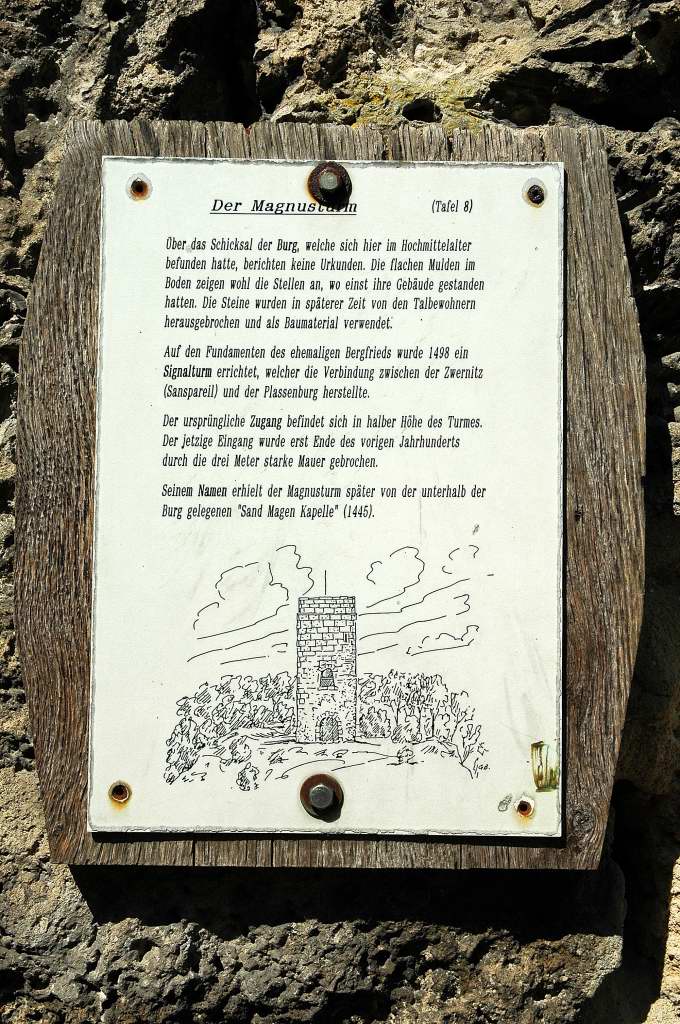 Der Magnusturm (Tafel 8)
Über das Schicksal der Burg, welche sich hier im Hochmittelalter
befunden hatte, berichten keine Urkunden. Die flachen Mulden im
Boden zeigen wohl die Stellen an, wo einst ihre Gebäude gestanden
hatten. Die Steine wurden in späterer Zeit von den Talbewohnern
herausgebrochen und als Baumaterial verwendet.
Auf den Fundamenten des ehemaligen Bergfrieds wurde 1498 ein
Signalturm errichtet, welcher die Verbindung zwischen der Zwernitz
(Sanspareil) und der Plassenburg herstellte.
Der ursprüngliche Zugang befindet sich in halber Höhe des Turmes.
Der jetzige Eingang wurde erst Ende des vorigen Jahrhunderts
durch die drei Meter starke Mauer gebrochen.
Seinem Namen erhielt der Magnusturm später von der unterhalb der
Burg gelegenen "Sand Magen Kapelle" (1445).